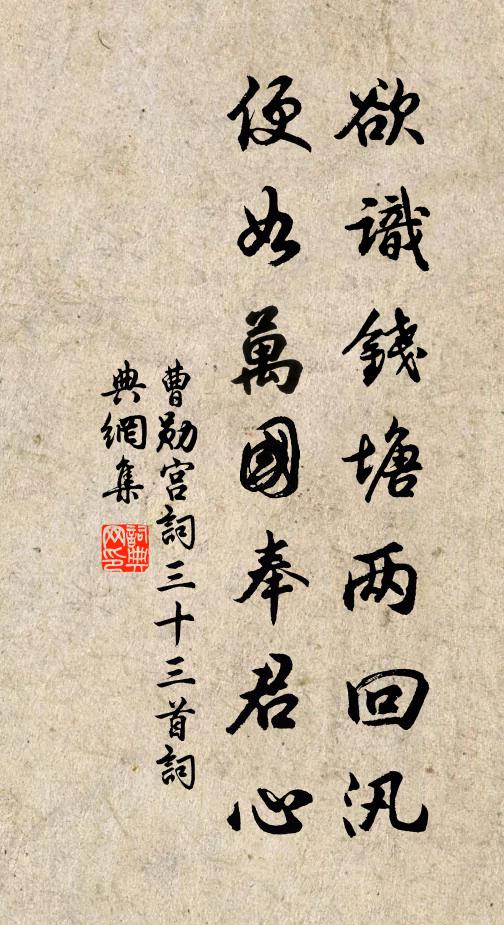 欲識錢塘两回汛
便如萬國奉君心
曹勛宮詞三十三首詞
典網集
詞典
网印